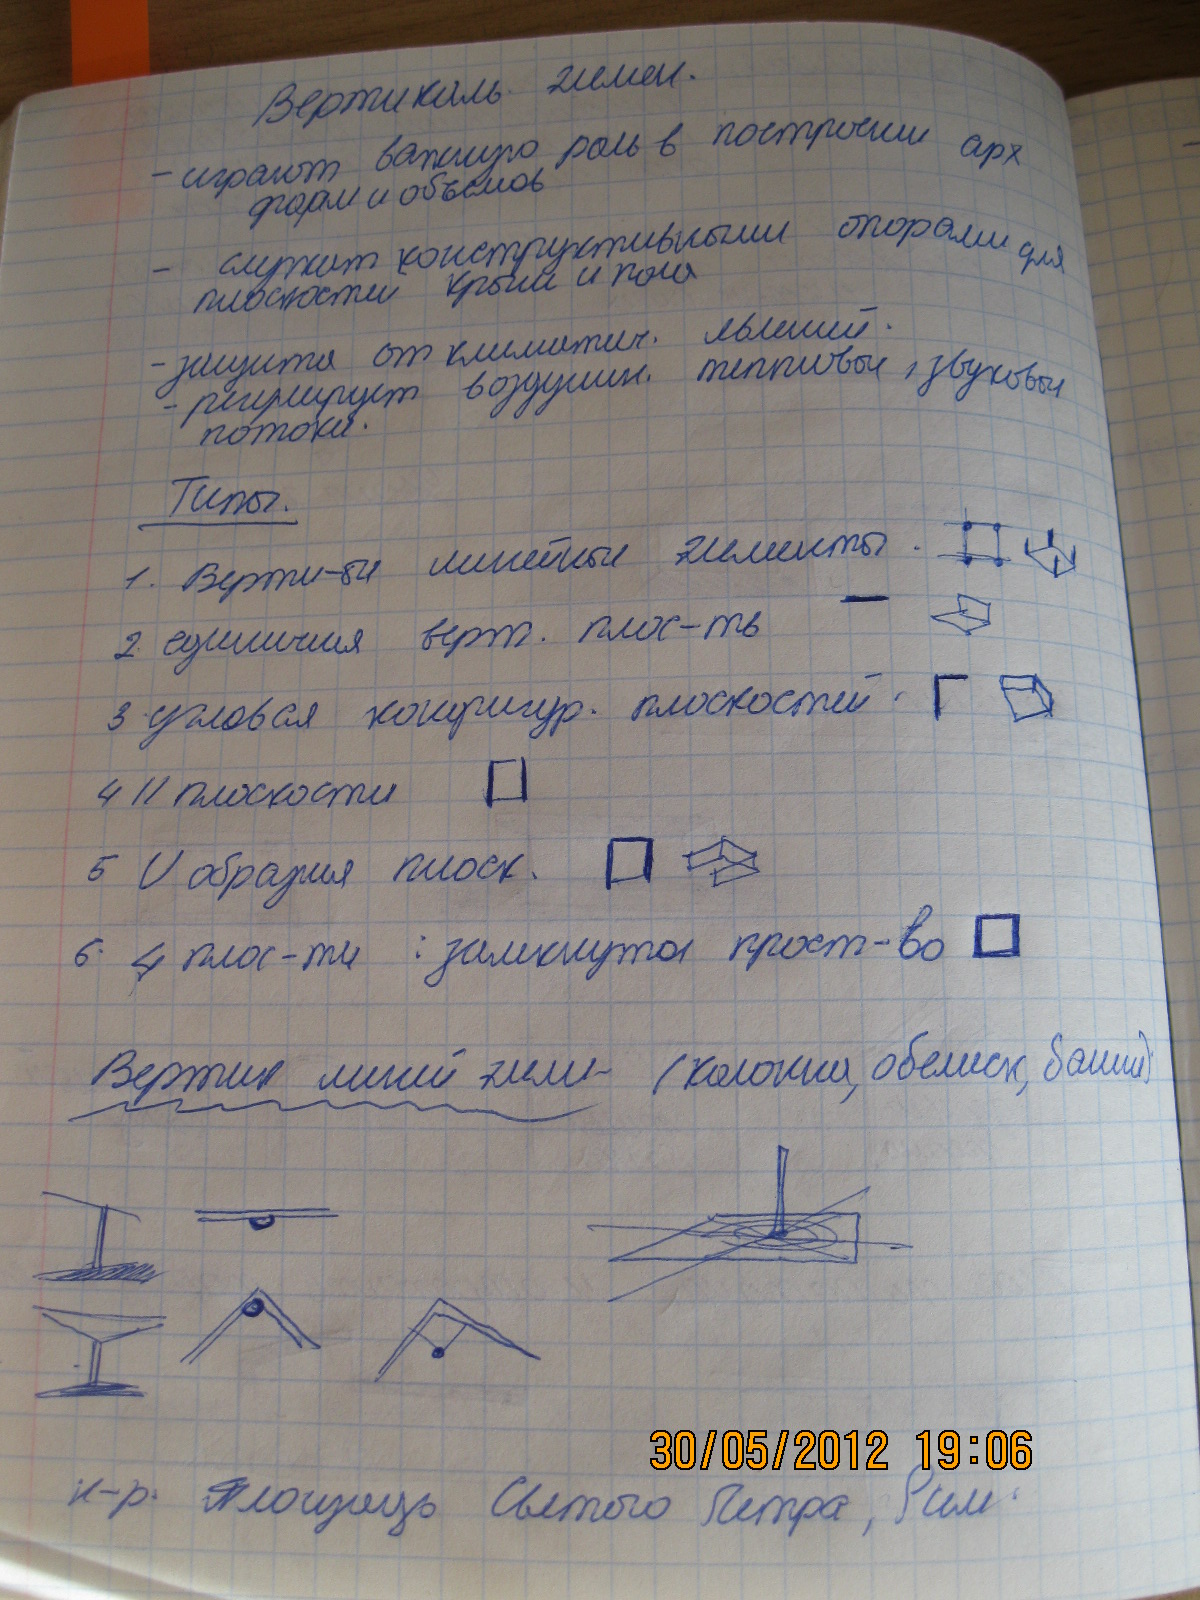 Вертикаль. элемен.
- играют важную роль в построении арх
форм и объемов
- служат конструктивными опорами для
плоскостей крыши и пола
- защита от климатич. явлений.
- регулирует воздушн. тепловые, звуковые
потоки.
Типы.
1. Верти-ые линейные элементы.
2. единичная верт. плос-ть
3. угловая конфигур. плоскостей.
4 || плоскости
5 U образная плоск.
6. 4 плос-ти : замкнутое прост-во
Вертик линей элем- (колонна, обелиск, башня)
30/05/2012 19:06
н-р. Площадь Святого Петра, Рим.